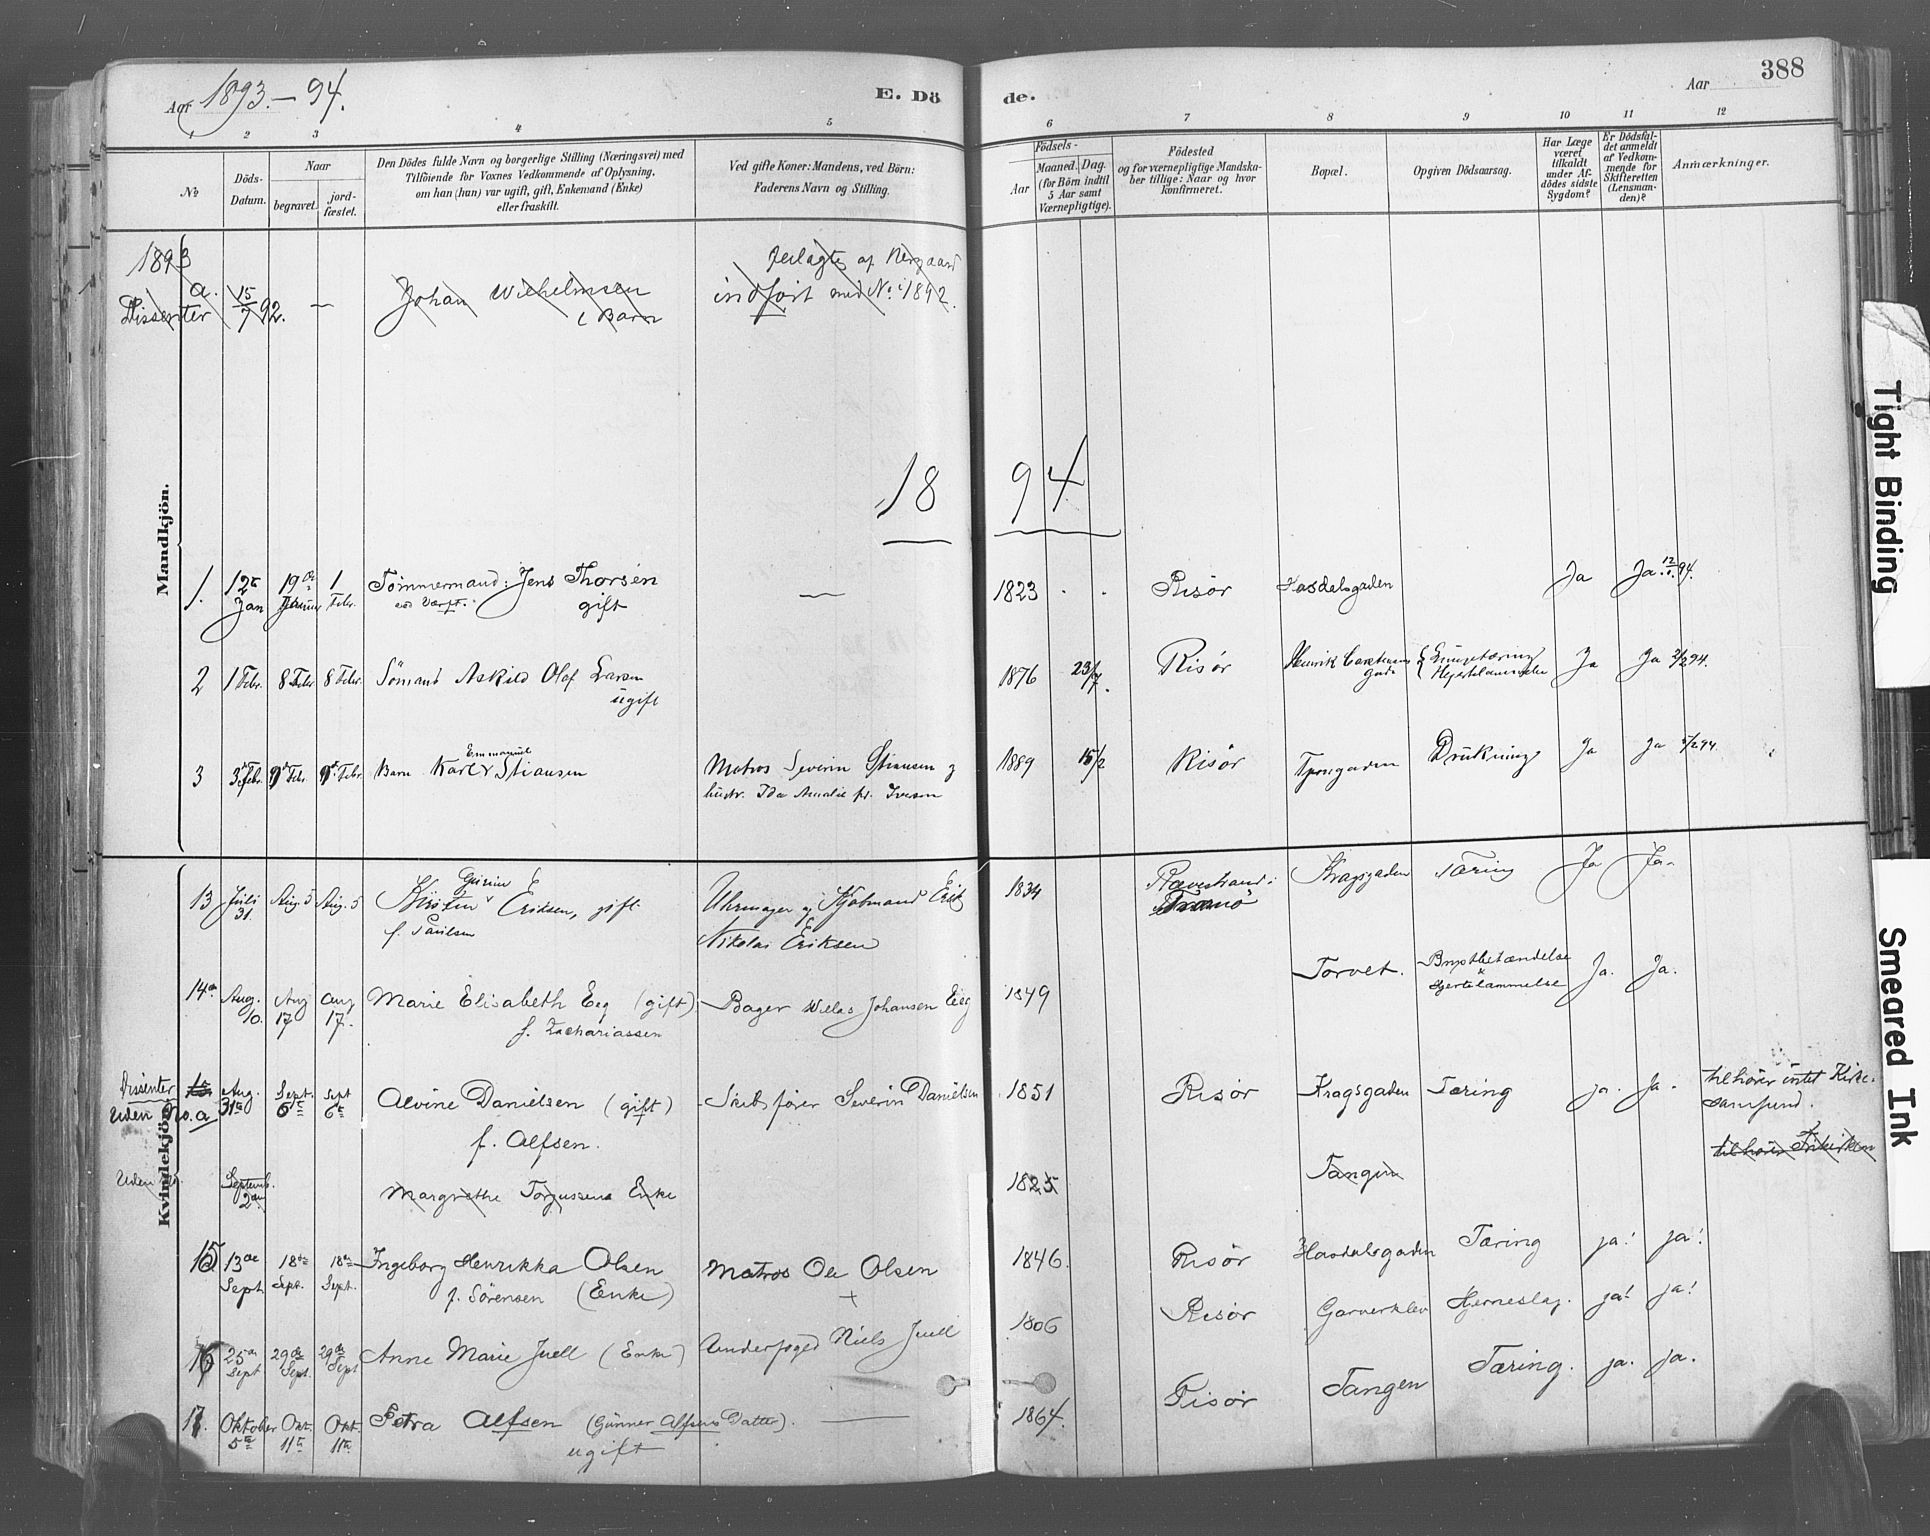 Aar 1893.–94.
E. Dö
de.
Aar
388
1 2 3 4 5 6 7 8 9 10 11 12
No
Döds-
Datum.
Naar
begravet.
jord-
fæstet.
Den Dödes fulde Navn og borgerlige Stilling (Næringsvei) med
Tilföiende for Voxnes Vedkommende af Oplysning,
om han (hun) var ugift, gift, Enkemand (Enke)
eller fraskilt.
Ved gifte Koner: Mandens, ved Börn:
Faderens Navn og Stilling.
Födsels-
Aar
Maaned. Dag.
(for Börn indtil
5 Aar samt
Værnepligtige).
Födested
og for værnepligtige Mandska-
ber tillige: Naar og hvor
konfirmeret.
Bopæl.
Opgiven Dödsaarsag.
Har Læge
været
tilkaldt
under Af-
dödes sidste
Sygdom?
Er Dödsfal-
det anmeldt
af Vedkom-
mende for
Skifteretten
(Lensman-
den)?
Anmærkninger.
Mandkjön.
1893
a. Dissenter 15/7 92. — Johan Wilhelmsen
Barn
indført med No. 1892.
1894
1. 12te Jan 19de Januar 1 Febr. Tömmermand: Jens Thorsen
gift — 1823 Risör Hasdalsgaden Ja Ja. 94.
2 1 Febr. 8 Febr 8 Febr. Sömand Askild Olaf Larsen
ugift 1876 23/7. Risör Henrik Carstensens
gade Ja Ja 2/2 94.
3 3 Febr. 9 Febr. 9 Febr. Barn Karl Emmanuel Stiansen Matros Severin Stiansen og
hustr. Ida Amalie fd. Iversen 1889 15/2 Risör Drukning Ja Ja 5/2 94.
Kvindekjön.
13 Juli 31. Aug. 5 Aug. 5 Kirstin Gurine Eriksen, gift
f. Paulsen Uhrmager og Kjöbmand Erik
Nikolai Eriksen 1834 Kragsgaden Tæring Ja Ja.
14 Aug. 10. Aug 17 Aug 17. Marie Elisabeth Eeg (gift)
f. Zachariassen Bager Johansen Eeg 1849 Torvet. Brystbetændelse
&
Hjertelammelse Ja. Ja.
Dissenter
Uden No. a Aug. 31te Sept. 6te Sept 6te Alvine Danielsen (gift)
f. Alfsen. Skibsförer Severin Danielsen 1851 Risör Kragsgaden Tæring ja. Ja. tilhörer intet Kirke-
samfund.
tilhörer Frikirken
Uden No. Septemb. 2den Margrethe Torgussens Enke 1825 Tangen
15 13de Sept 18de Sept. 18de Sept. Ingeborg Henrikka Olsen
f. Sörensen (Enke) Matros Ole Olsen
+ 1846. Risör Hasdalsgaden Tæring ja! ja!
16 25de Sept 29de Sept. 29de Sept Anne Marie Juell (Enke) Underfoged Niels Juell 1806 Risör Garverklev Hjerneslag. ja! ja!
17. Oktober 5te Okt. 11te Okt. 11te Petra Alfsen (Gunner Alfsens Datter).
ugift — 1864. Risör Tangen Tæring. ja. ja.
Tight Binding
Smeared Ink